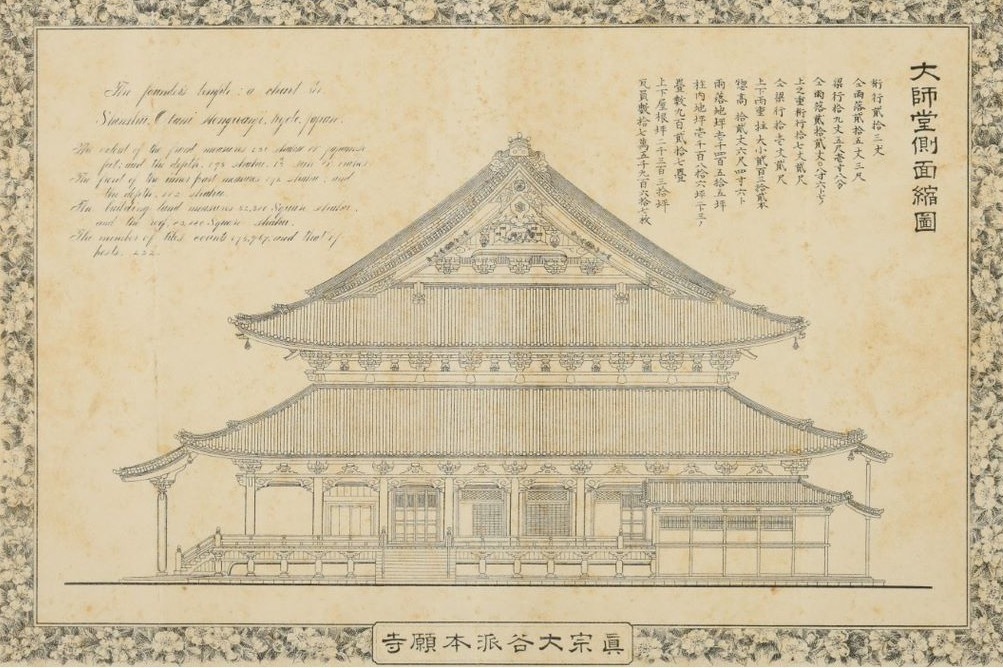 大師堂側面縮圖
桁行貳拾三丈
仝雨落貳拾五丈三尺
梁行拾九丈五尺壱寸八分
仝雨落貳拾貳丈〇八寸六
上之重桁行拾七丈貳尺
仝梁行拾七丈貳尺
上下両重柱大小貳百三拾貳本
惣高拾貳丈六尺四寸六
雨落地坪壱千四百五拾五坪
柱内地坪壱千百八拾六坪二下三
疊數九百貳拾七疊
上下屋根坪二千三百三拾坪
瓦員數拾七萬五千九百六拾七枚
The founder's temple: a chart
Shinshiu, Otani Hongwanji, Kyoto, Japan.
The extent of the front measures 231 shaku or Japanese
feet, and the depth, 195 shaku,
The front of the inner part measures 172 shaku, and
the depth, shaku.
The building land measures Square shaku,
and the roof Square shaku.
The number of tiles counts 175,967, and that of
posts, 232.
眞宗大谷派本願寺